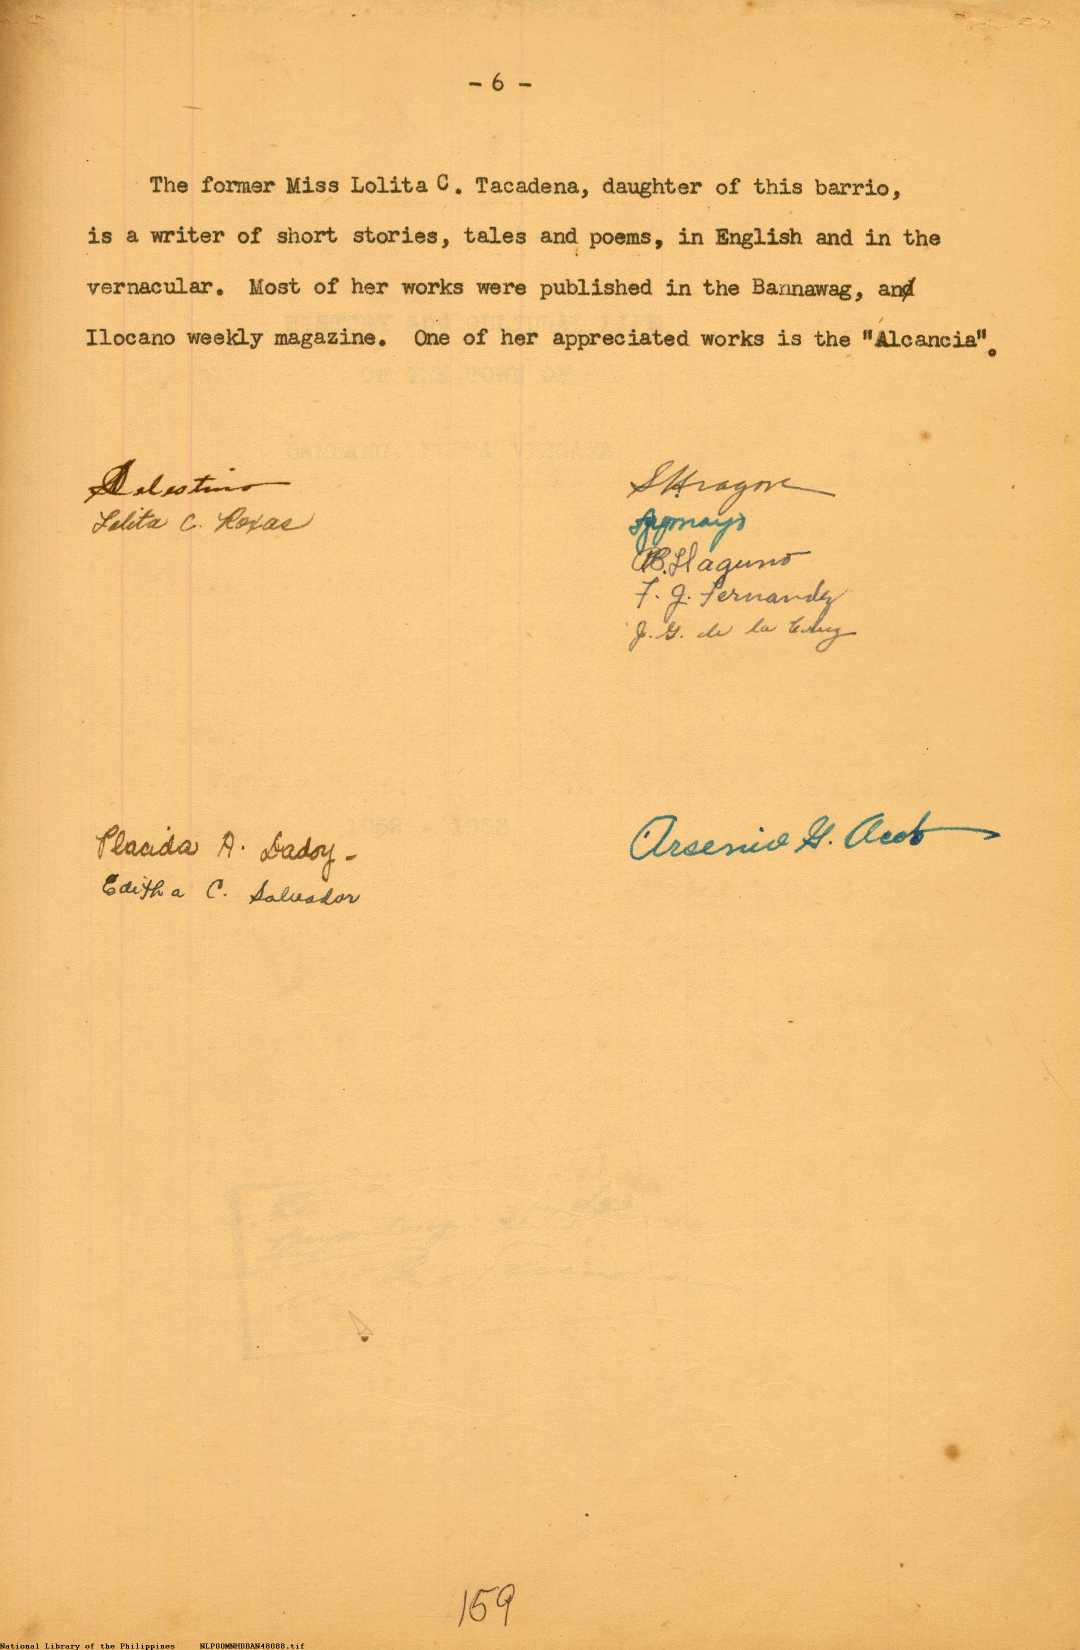 - 6 -
The former Miss Lolita C. Tacadena, daughter of this barrio,
is a writer of short stories, tales and poems, in English and in the
vernacular. Most of her works were published in the Bannawag, and
Ilocano weekly magazine. One of her appreciated works is the "Alcancia".
Lolita C. Roxas
F. J. Fernandez
J. G. de la Cruz
Placida A. Dadoy
Editha C. Salvador
Arsenio G. Acob
159
National Library of the Philippines NLP00MNHDBAN48088.tif